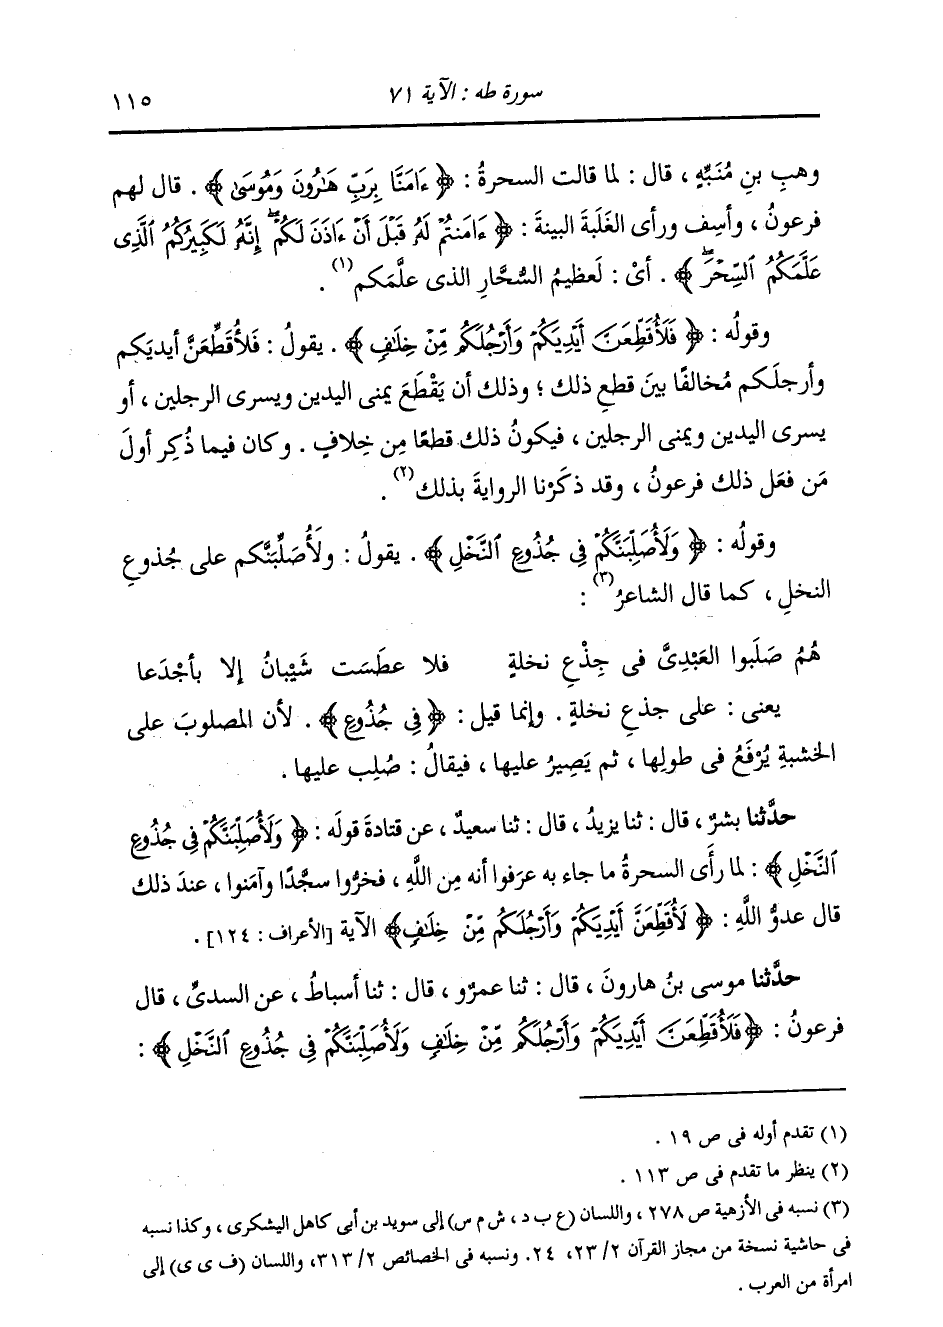 سورة طه : الآية ٧١
١١٥
وهبِ بنِ مُنَبِّهٍ ، قال : لما قالت السحرةُ : ﴿ ءَامَنَّا بِرَبِّ هَٰرُونَ وَمُوسَىٰ ﴾ . قال لهم
فرعونُ ، وأسِف ورأى الغَلَبةَ البينةَ : ﴿ ءَامَنتُمْ لَهُۥ قَبْلَ أَنْ ءَاذَنَ لَكُمْۖ إِنَّهُۥ لَكَبِيرُكُمُ ٱلَّذِى
عَلَّمَكُمُ ٱلسِّحْرَۖ ﴾ . أىْ : لَعظيمُ السُّحَّارِ الذى علَّمَكم (١) .
وقولُه : ﴿ فَلَأُقَطِّعَنَّ أَيْدِيَكُمْ وَأَرْجُلَكُم مِّنْ خِلَٰفٍ ﴾ . يقولُ : فَلأُقَطِّعَنَّ أيديَكم
وأرجلَكم مُخالفًا بينَ قطعِ ذلك ؛ وذلك أن يَقْطَعَ يمنى اليدين ويسرى الرجلين ، أو
يسرى اليدين ويمنى الرجلين ، فيكونُ ذلك قطعًا مِن خِلافٍ . وكان فيما ذُكِر أولَ
مَن فعَل ذلك فرعونُ ، وقد ذكَرْنا الروايةَ بذلك (٢) .
وقولُه : ﴿ وَلَأُصَلِّبَنَّكُمْ فِى جُذُوعِ ٱلنَّخْلِ ﴾ . يقولُ : ولأُصَلِّبَنَّكم على جُذوعِ
النخلِ ، كما قال الشاعرُ (٣) :
هُمُ صَلَبوا العَبْدِىَّ فى جِذْعِ نخلةٍ فلا عطَسَت شَيْبانُ إلا بأجْدَعا
يعنى : على جذعِ نخلةٍ . وإنما قيل : ﴿ فِى جُذُوعِ ﴾ . لأن المصلوبَ على
الخشبةِ يُرْفَعُ فى طولِها ، ثم يَصِيرُ عليها ، فيقالُ : صُلِب عليها .
حدَّثنا بشرٌ ، قال : ثنا يزيدُ ، قال : ثنا سعيدٌ ، عن قتادةَ قولَه : ﴿ وَلَأُصَلِّبَنَّكُمْ فِى جُذُوعِ
ٱلنَّخْلِ ﴾ : لما رأَى السحرةُ ما جاء به عرَفوا أنه مِن اللَّهِ ، فخرُّوا سجَّدًا وآمَنوا ، عندَ ذلك
قال عدوُّ اللَّهِ : ﴿ لَأُقَطِّعَنَّ أَيْدِيَكُمْ وَأَرْجُلَكُم مِّنْ خِلَٰفٍ ﴾ الآية [الأعراف : ١٢٤] .
حدَّثنا موسى بنُ هارونَ ، قال : ثنا عمرٌو ، قال : ثنا أسباطُ ، عن السدىِّ ، قال
فرعونُ : ﴿ فَلَأُقَطِّعَنَّ أَيْدِيَكُمْ وَأَرْجُلَكُم مِّنْ خِلَٰفٍ وَلَأُصَلِّبَنَّكُمْ فِى جُذُوعِ ٱلنَّخْلِ ﴾ :
(١) تقدم أوله فى ص ١٩ .
(٢) ينظر ما تقدم فى ص ١١٣ .
(٣) نسبه فى الأزهية ص ٢٧٨ ، واللسان (ع ب د ، ش م س) إلى سويد بن أبى كاهل اليشكرى ، وكذا نسبه
فى حاشية نسخة من مجاز القرآن ٢/ ٢٣، ٢٤. ونسبه فى الخصائص ٢/ ٣١٣، واللسان (ف ى ى) إلى
امرأة من العرب .